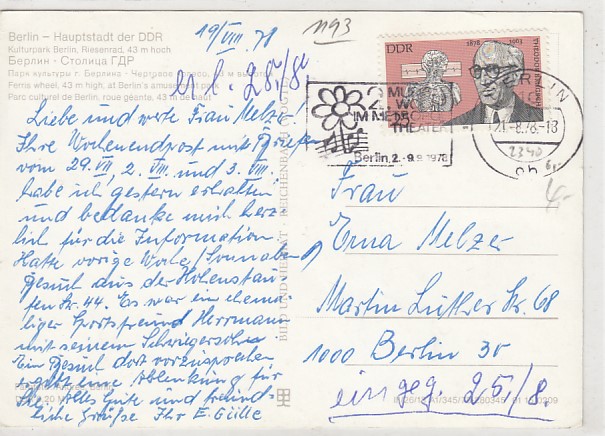 1193
19/VIII. 78
Berlin – Hauptstadt der DDR
Kulturpark Berlin, Riesenrad, 43 m hoch
Берлин · Столица ГДР
Парк культуры г. Берлина · Чертово колесо, 43 м высотой
Ferris wheel, 43 m high, at Berlin's amusement park
Parc culturel de Berlin, roue géante, 43 m de haut
25./8.
Liebe und werte Frau Melzer!
Ihre Wochenendpost mit Briefen
vom 29. VII, 2. VIII und 3. VIII.
habe ich gestern erhalten
und bedanke mich herz
lich für die Information.
Hatte vorige Woche/Sonnabend
Besuch aus der Hohenstau-
fen Str. 44. Es war ein ehema-
liger Sportsfreund Herrmann
mit seinem Schwiegersohn.
Ein Besuch dort vorzusprechen
Ablenkung für
Sie. Alles Gute und freund-
liche Grüße Ihr E. Gülle
BILD UND HEIMAT REICHENBACH (VOGTL)
DDR
1878
1963
25
IM METROPOL
THEATER
Berlin, 2.-9.9.1978
BERLIN
21.-8.78-18
Frau
Erna Melzer
Martin Luther Str. 68
1000 Berlin 30
eingeg. 25./8.